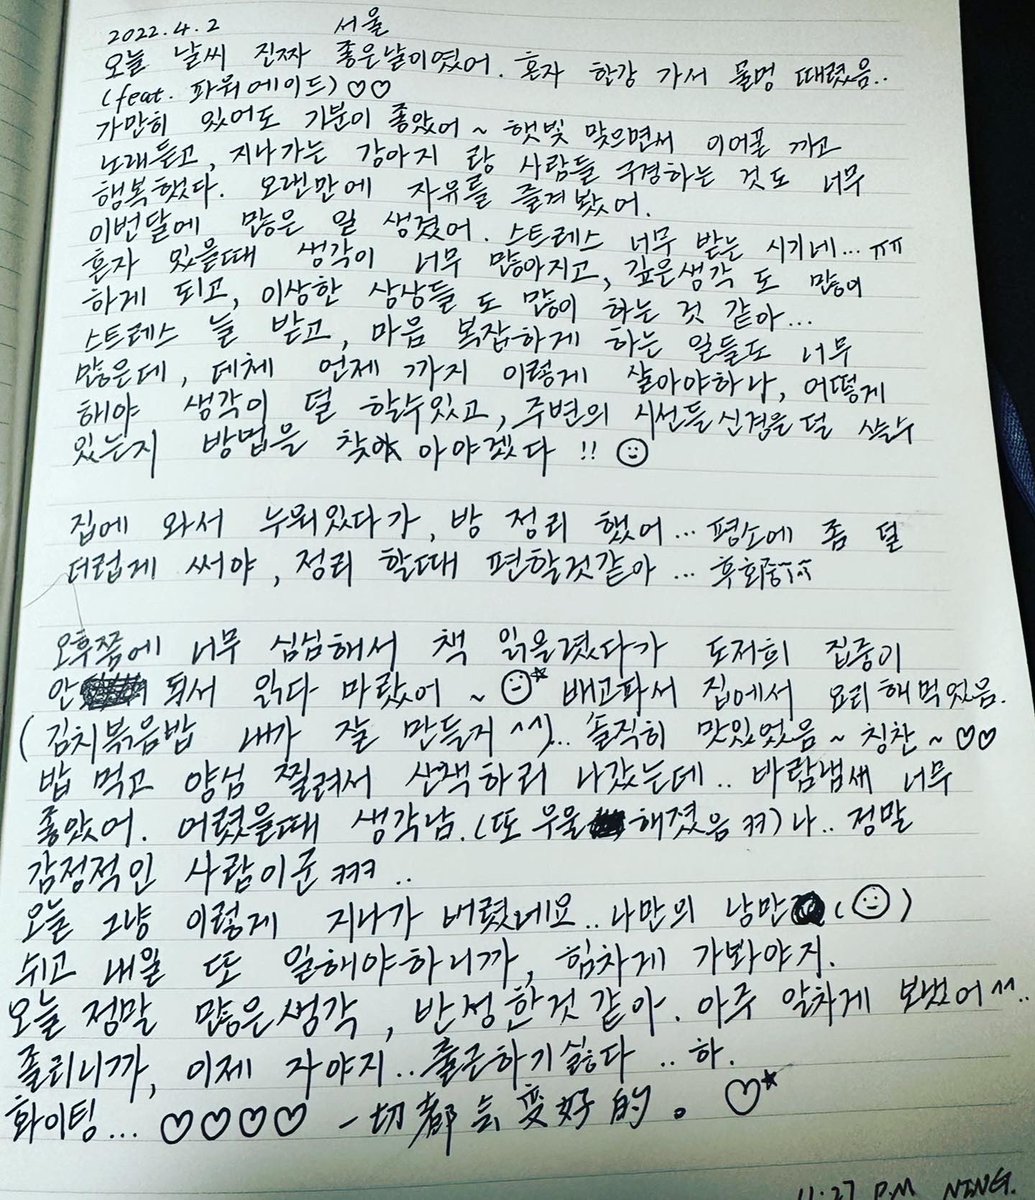 2022.4.2 서울
오늘 날씨 진짜 좋은날이였어. 혼자 한강 가서 물멍 때렸음..
(feat. 파워에이드) ♡♡
가만히 있어도 기분이 좋았어~ 햇빛 맞으면서 이어폰 끼고
노래듣고, 지나가는 강아지 랑 사람들 구경하는 것도 너무
행복했다. 오랜만에 자유를 즐겨봤어.
이번달에 많은 일 생겼어. 스트레스 너무 받는 시기네... ㅠㅠ
혼자 있을때 생각이 너무 많아지고, 깊은생각 도 많이
하게 되고, 이상한 상상들 도 많이 하는 것 같아...
스트레스 늘 받고, 마음 복잡하게 하는 일들도 너무
많은데, 데체 언제 까지 이렇게 살아야하나, 어떻게
해야 생각이 덜 할수있고, 주변의 시선들 신경을 덜 쓸수
있는지 방법을 찾아야겠다 !! ☺
집에 와서 누워있다가, 방 정리 했어... 평소에 좀 덜
더럽게 써야, 정리 할때 편할것같아 ... 후회중ㅠㅠ
오후쯤에 너무 심심해서 책 읽을렸다가 도저희 집중이
안 되서 읽다 마랐어~ ☺* 배고파서 집에서 요리해먹었음.
(김치볶음밥 내가 잘 만들지 ^^)... 솔직히 맛있었음~ 칭찬~ ♡♡
밥 먹고 양심 찔려서 산책하러 나갔는데.. 바람냄새 너무
좋았어. 어렸을때 생각남.(또 우울 해졌음 ㅋㅋ) 나.. 정말
감정적인 사람이군 ㅋㅋㅋ ..
오늘 그냥 이렇게 지나가 버렸네요.. 나만의 낭만 (☺)
쉬고 내일 또 일해야하니까, 힘차게 가봐야지.
오늘 정말 많은생각, 반성한것 같아. 아주 알차게 보냈어^^..
졸리니까, 이제 자야지.. 출근하기싫다 .. 하.
화이팅... ♡♡♡♡ 一切都会变好的。♡★
11:27 P.M NING.